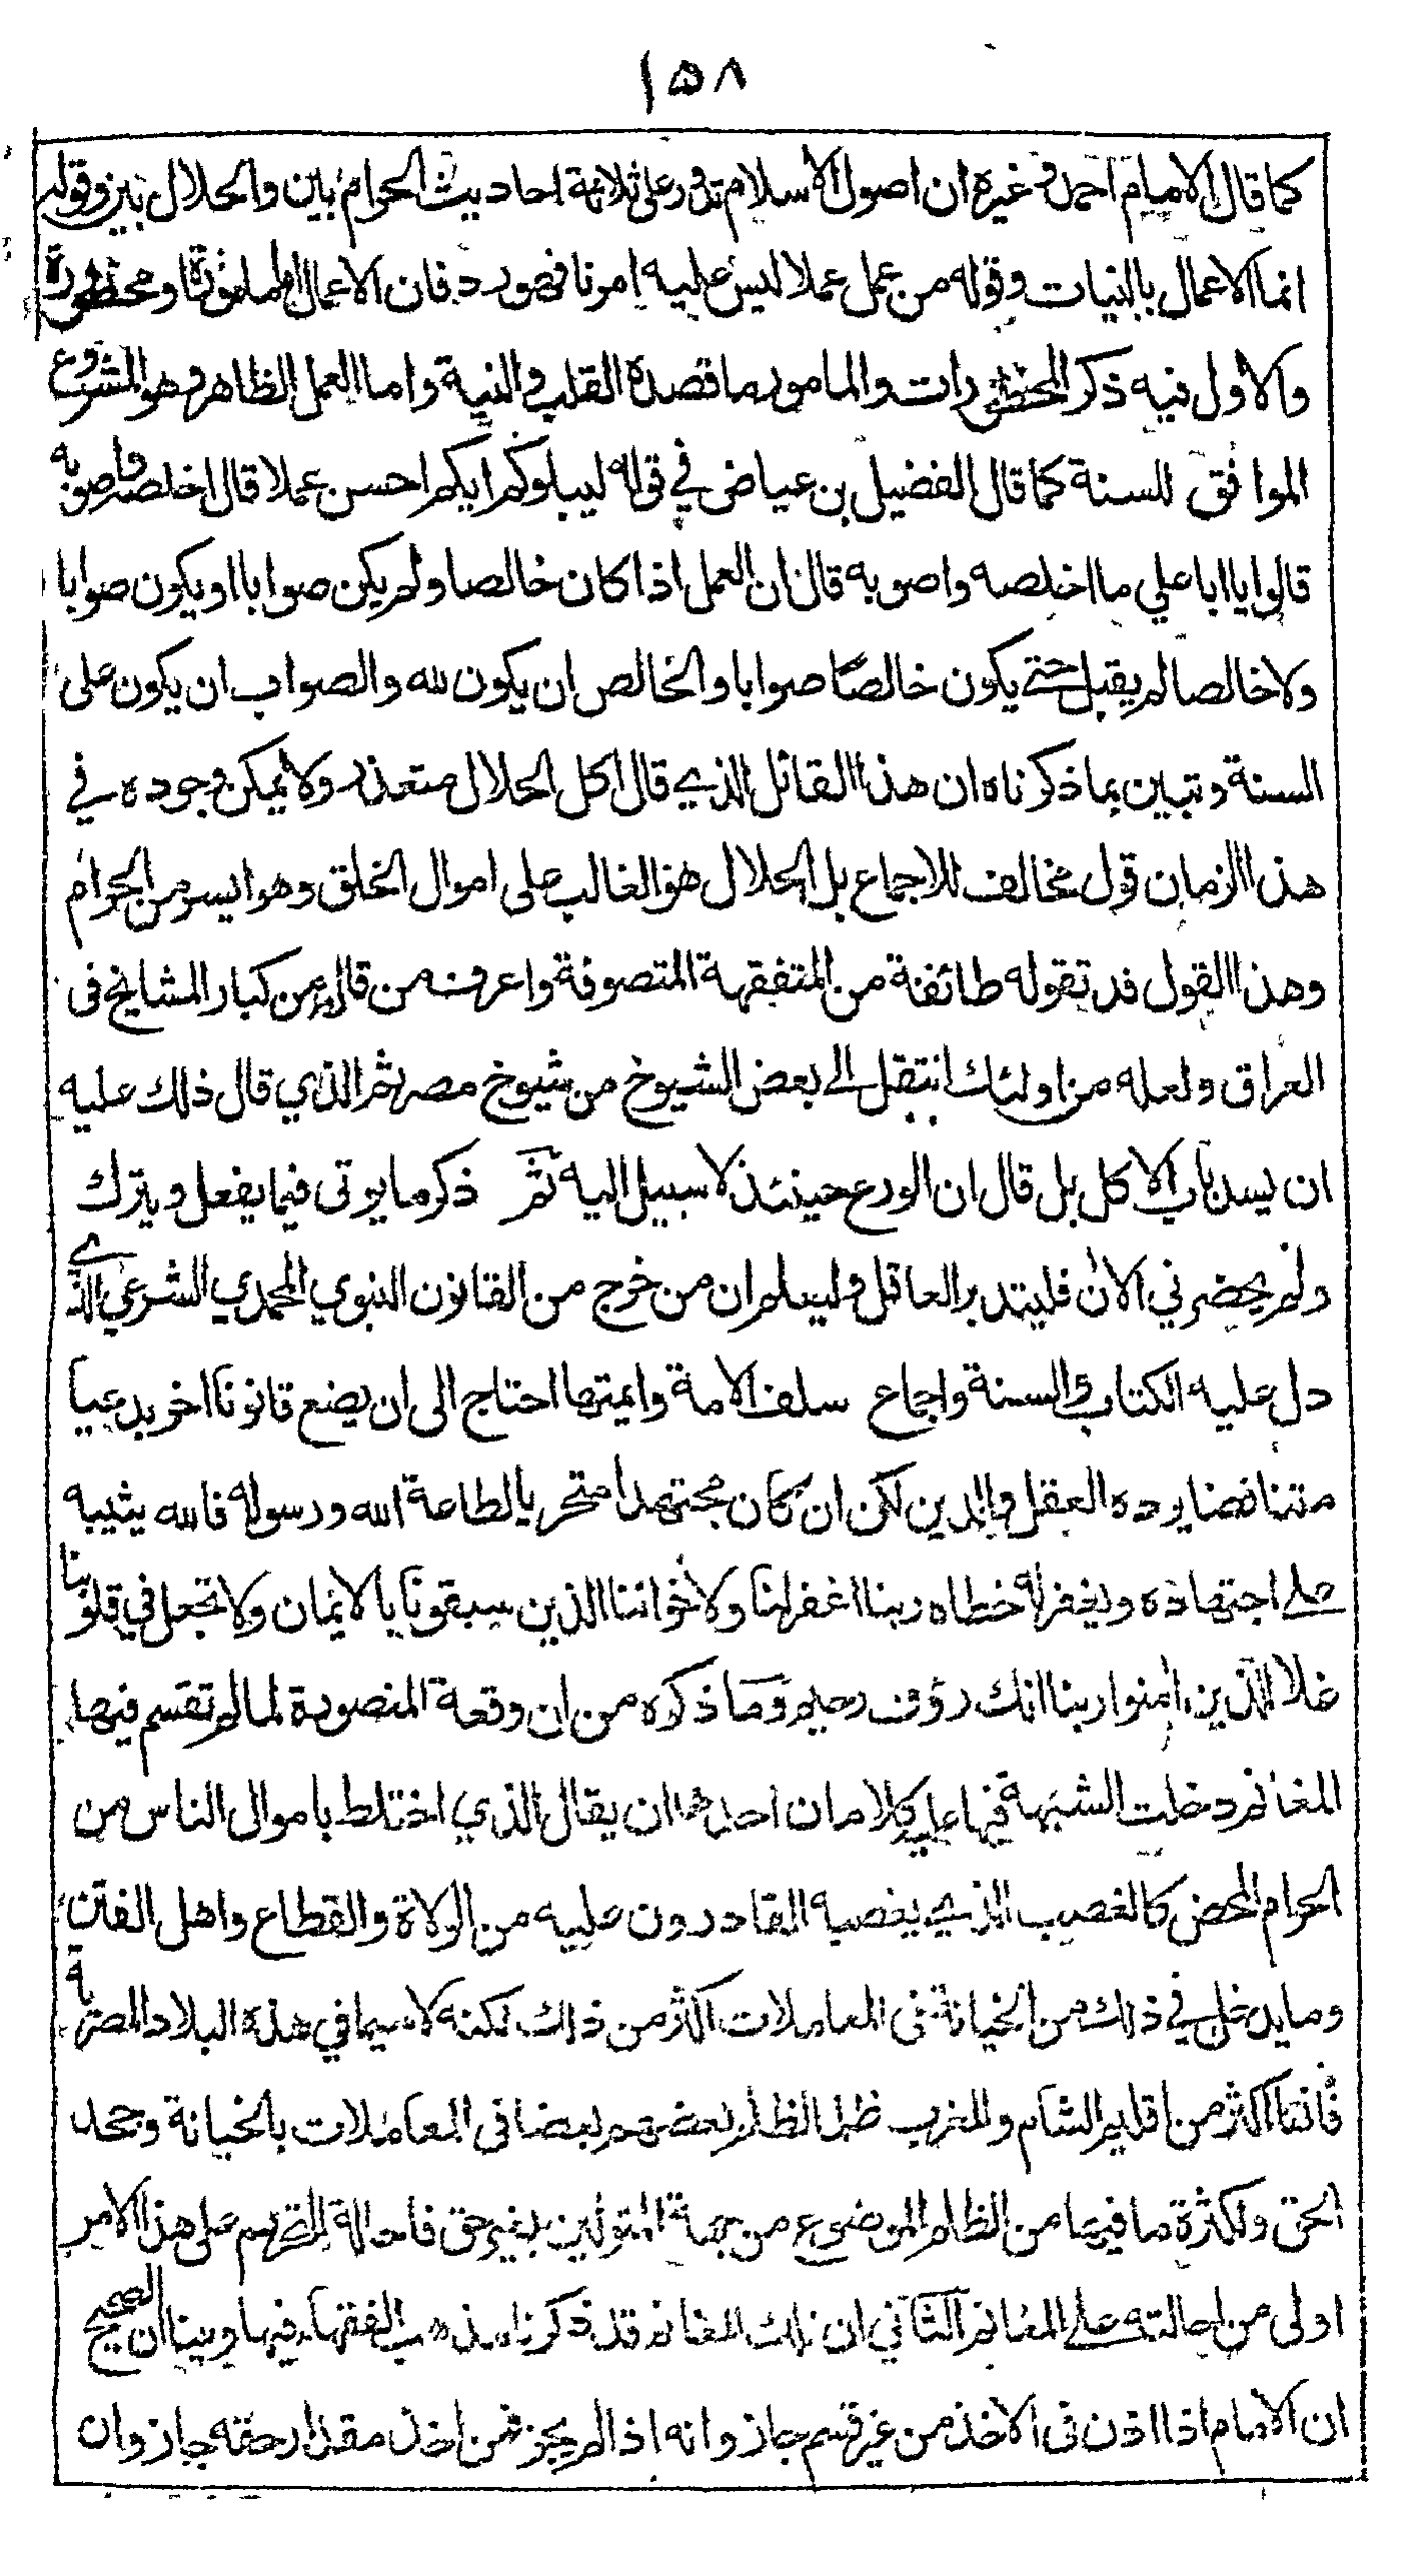 ١٥٨
كما قال الامام احمد وغيره ان اصول الاسلام تدور على ثلاثة احاديث الحرام بين والحلال بين وقوله
انما الاعمال بالنيات وقوله من عمل عملا ليس عليه امرنا فهو رد فان الاعمال اما مامورة او محظورة
والاول فيه ذكر المحظورات والمامور ما قصده القلب والنية واما العمل الظاهر وهو المشروع
الموافق للسنة كما قال الفضيل بن عياض في قوله ليبلوكم ايكم احسن عملا قال اخلصه واصوبه
قالوا يا ابا علي ما اخلصه واصوبه قال ان العمل اذا كان خالصا ولم يكن صوابا او يكون صوابا
ولا خالصا لم يقبل حتى يكون خالصًا صوابا والخالص ان يكون لله والصواب ان يكون على
السنة وتبين بما ذكرناه ان هذا القائل الذي قال اكل الحلال متعذر ولا يمكن وجوده في
هذا الزمان قول مخالف للاجماع بل الحلال هو الغالب على اموال الخلق وهو ايسر من الحرام
وهذا القول قد تقوله طائفة من المتفقهة المتصوفة واعرف من قاله من كبار المشايخ في
العراق ولعله من اولئك انتقل الى بعض الشيوخ من شيوخ مصر ثم الذي قال ذلك عليه
ان يسد باب الاكل بل قال ان الورع حينئذ لا سبيل اليه ثم ذكر ما يوتى فيما يفعل ويترك
ولم يحضرني الان فليتدبر العاقل وليعلم ان من خرج من القانون النبوي المحمدي الشرعي الذي
دل عليه الكتاب والسنة واجماع سلف الامة وايمتها احتاج الى ان يضع قانونا اخر بدعيا
متناقضا يرده العقل والدين لكن ان كان مجتهدا متحريا لطاعة الله ورسوله فالله يثيبه
على اجتهاده ويغفر له خطاه ربنا اغفر لنا ولاخواننا الذين سبقونا بالايمان ولا تجعل في قلوبنا
غلا للذين امنوا ربنا انك رؤف رحيم وما ذكره من ان وقعة المنصورة لما لم تقسم فيها
المغانم دخلت الشبهة فيها عليه كلامان احدهما ان يقال الذي اختلط باموال الناس من
الحرام المحض كالغصب الذي يغصبه القادرون عليه من الولاة والقطاع واهل الفتن
وما يدخل في ذلك من الخيانة في المعاملات اكثر من ذلك لكنه لا سيما في هذه البلاد المصرية
فانها اكثر من اقليم الشام والمغرب ظلما لظلم بعضهم بعضا في المعاملات بالخيانة وجحد
الحق ولكثرة ما فيها من الظلم الموضوع من جهة المتولين بغير حق فاحالة التحريم على هذا الامر
اولى من احالته على المغانم الثاني ان تلك المغانم قد ذكرنا مذهب الفقهاء فيها وبينا ان الصحيح
ان الامام اذا اذن في الاخذ من غير قسم جاز وانه اذا لم يجز فمن اخذ مقدار حقه جاز وان